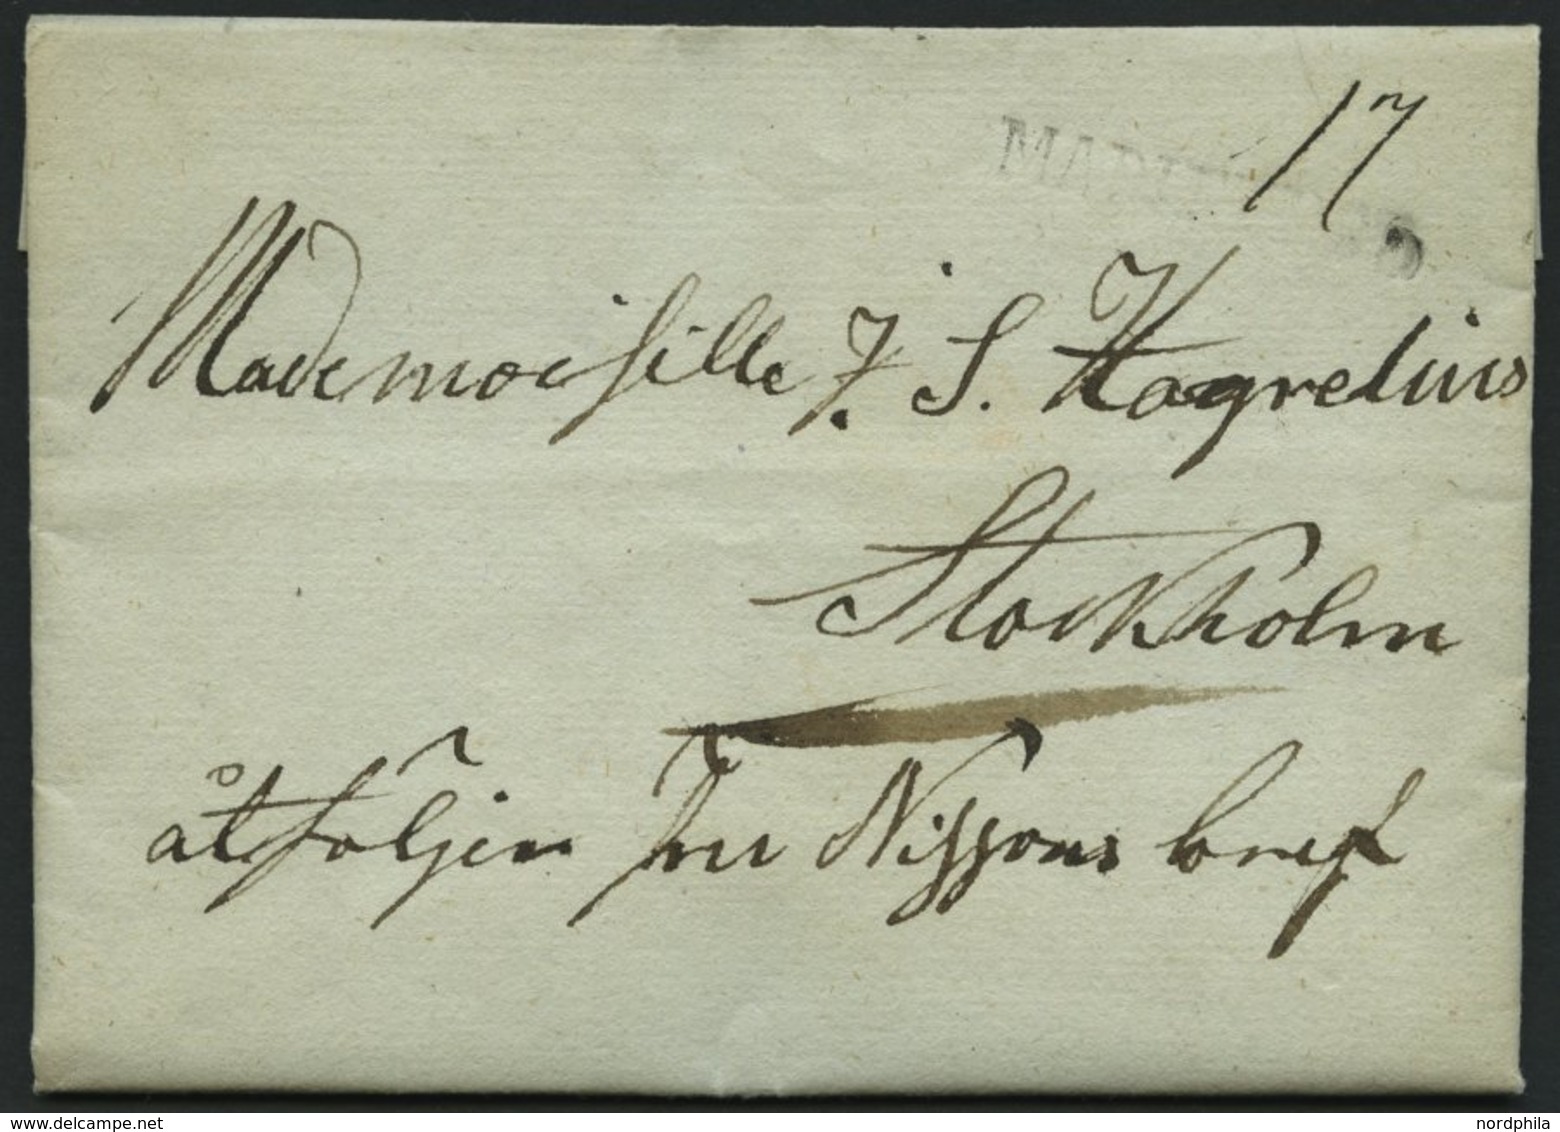 17
Mademoiselle J. S. Hagrelius
Stockholm
åtföljer Hr Nissons bref
www.delcampe.net
nordphila